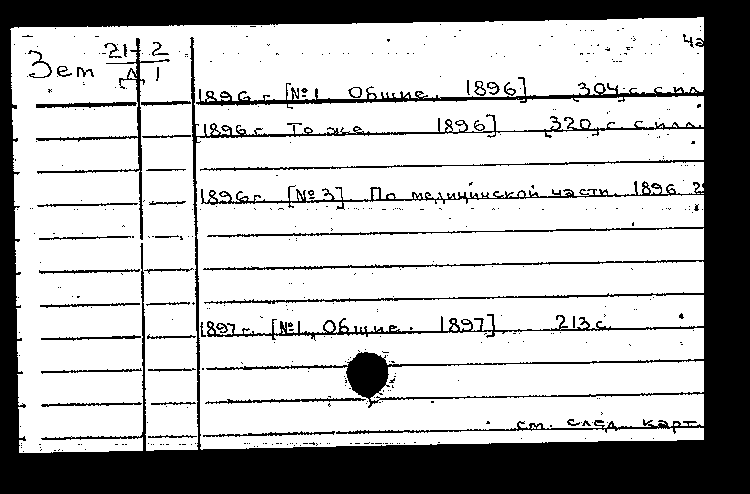 Зет 21-2
1
1896 г. [№1 Общие. 1896] 304 с. с илл.
1896 г. То же. 1896] 320 с. с илл.
1896 г. [№3] По медицинской части. 1896
1897 г. [№1 Общие. 1897] 213 с.
см. след. карт.